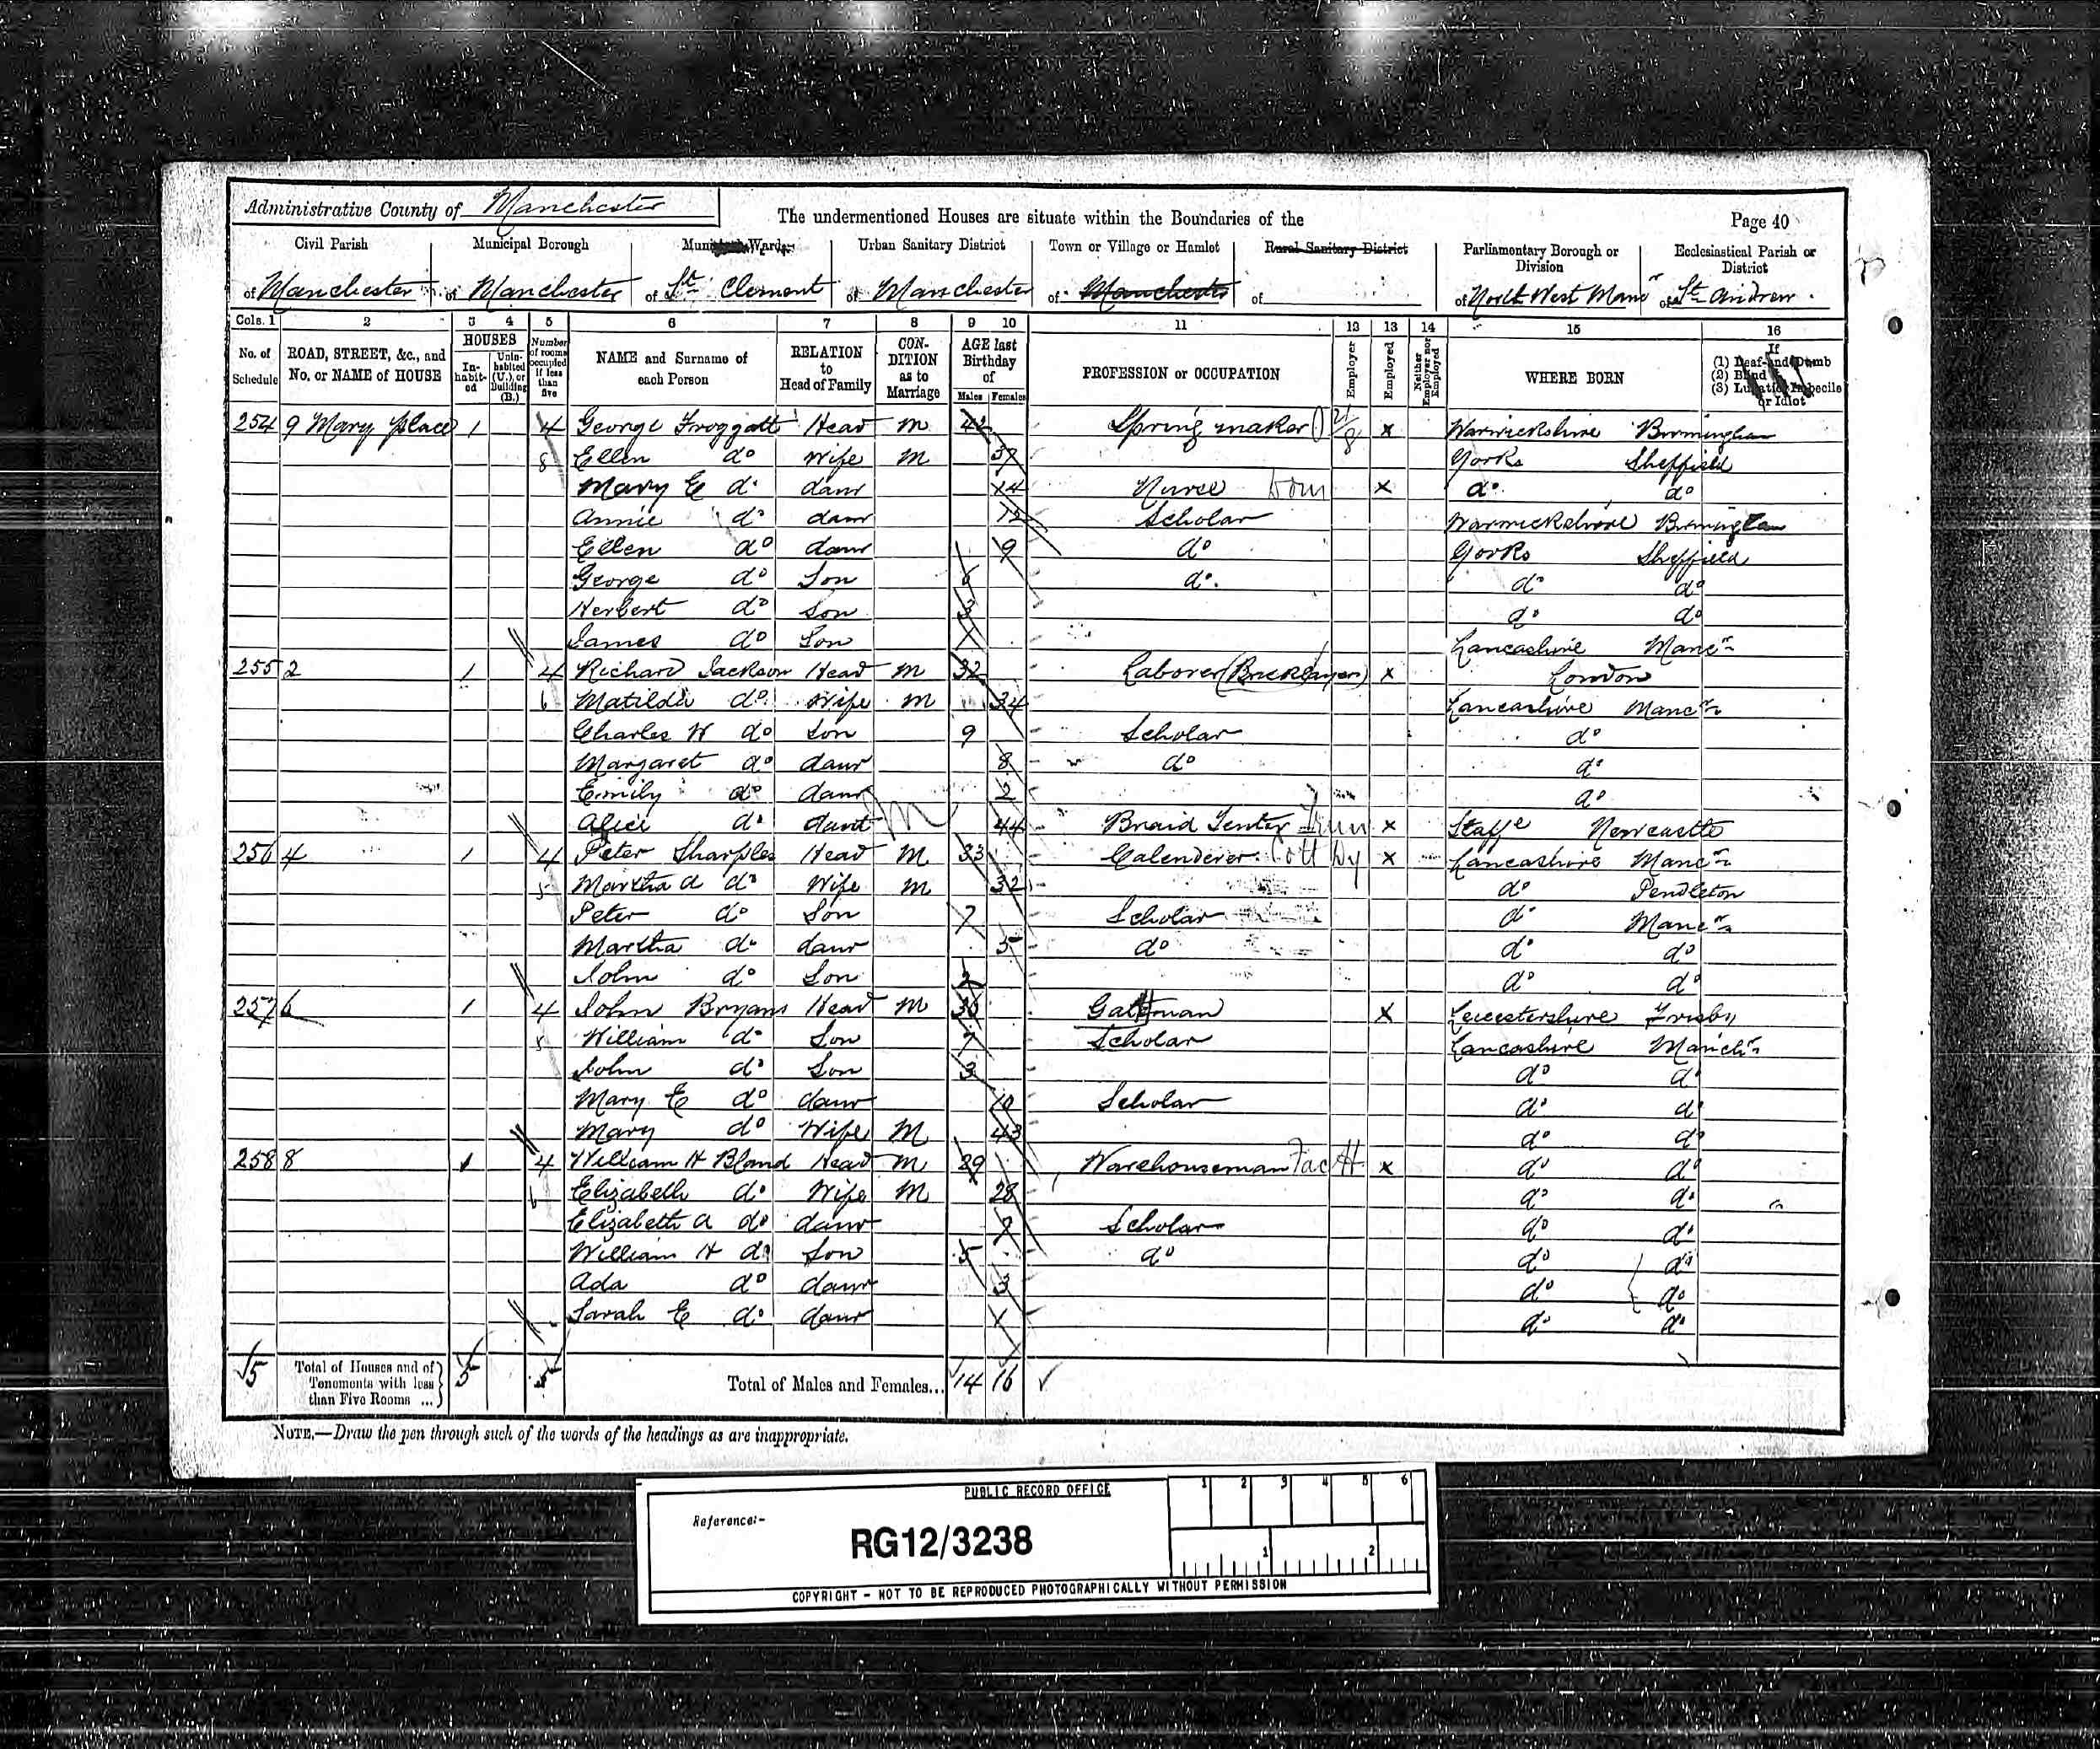 Administrative County of Manchester
The undermentioned Houses are situate within the Boundaries of the
Page 40
Civil Parish Municipal Borough Municipal Ward Urban Sanitary District Town or Village or Hamlet Rural Sanitary District Parliamentary Borough or Division Ecclesiastical Parish or District
of Manchester of Manchester of St. Clement of Manchester of Manchester of of North West Manr of St Andrew.
Cols. 1 2 3 4 5 6 7 8 9 10 11 12 13 14 15 16
No. of Schedule ROAD, STREET, &c., and No. or NAME of HOUSE HOUSES In-habit-ed Unin-habited (U.), or Building (B.) Number of rooms occupied if less than five NAME and Surname of each Person RELATION to Head of Family CON-DITION as to Marriage AGE last Birthday of Males Females PROFESSION or OCCUPATION Employer Employed Neither Employer nor Employed WHERE BORN If (1) Deaf-and-Dumb (2) Blind (3) Lunatic, Imbecile or Idiot
254 9 Mary place 1 4 George Froggatt Head M 42 Spring maker x Warwickshire Birmingham
8 Ellen do Wife M 37 Yorks Sheffield
Mary E do daur 14 Nurse Dom x do do
Annie do daur 12 Scholar Warwickshire Birmingham
Ellen do daur 9 do Yorks Sheffield
George do Son 6 do. do do
Herbert do Son 3 do do
James do Son 1 Lancashire Mancr
255 2 1 4 Richard Jackson Head M 32 Laborer (Bricklayer) x London
6 Matilda do Wife M 34 Lancashire Mancr
Charles W do Son 9 Scholar do
Margaret do daur 8 do do
Emily do daur 2 do
Alice do 44 Braid Tenter x Staffe Newcastle
256 4 1 4 Peter Sharples Head M 33 Calenderer Cott Dy x Lancashire Mancr
5 Martha A do Wife M 32 do Pendleton
Peter do Son 7 Scholar do Mancr
Martha do daur 5 do do do
John do Son 2 do do
257 6 1 4 John Bryans Head M 36 x Leicestershire Frisby
5 William do Son 7 Scholar Lancashire Manchr
John do Son 3 do do
Mary E do daur 10 Scholar do do
Mary do Wife M 43 do do
258 8 1 4 William H Bland Head M 29 Warehouseman x do do
6 Elizabeth do Wife M 28 do do
Elizabeth A do daur 7 Scholar do do
William H do Son 5 do do do
Ada do daur 3 do do
Sarah E do daur 1 do do
5 Total of Houses and of Tenements with less than Five Rooms ... 5 5 Total of Males and Females... 14 16
NOTE.—Draw the pen through such of the words of the headings as are inappropriate.
PUBLIC RECORD OFFICE
1 2 3 4 5 6
Reference:-
RG12/3238
1 2
COPYRIGHT - NOT TO BE REPRODUCED PHOTOGRAPHICALLY WITHOUT PERMISSION